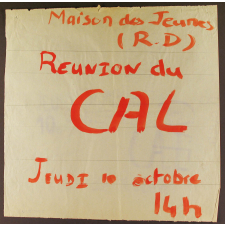 Maison des Jeunes
(R.D)
REUNION du
CAL
JEUDI 10 octobre
14h